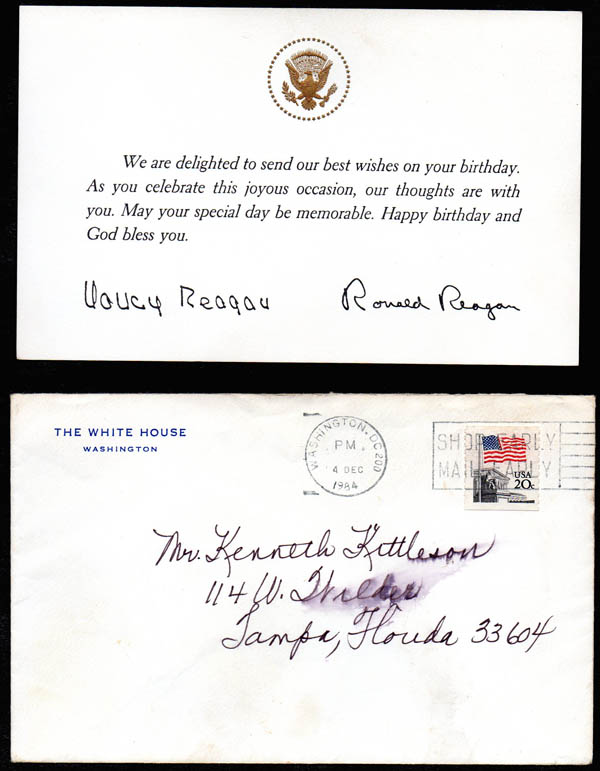 We are delighted to send our best wishes on your birthday.
As you celebrate this joyous occasion, our thoughts are with
you. May your special day be memorable. Happy birthday and
God bless you.
Nancy Reagan Ronald Reagan
THE WHITE HOUSE
WASHINGTON
WASHINGTON, DC 200
PM
4 DEC
1984
SHOP EARLY
MAIL EARLY
USA
20c
Mr. Kenneth Kittleson
114 W. Wilder
Tampa, Florida 33604